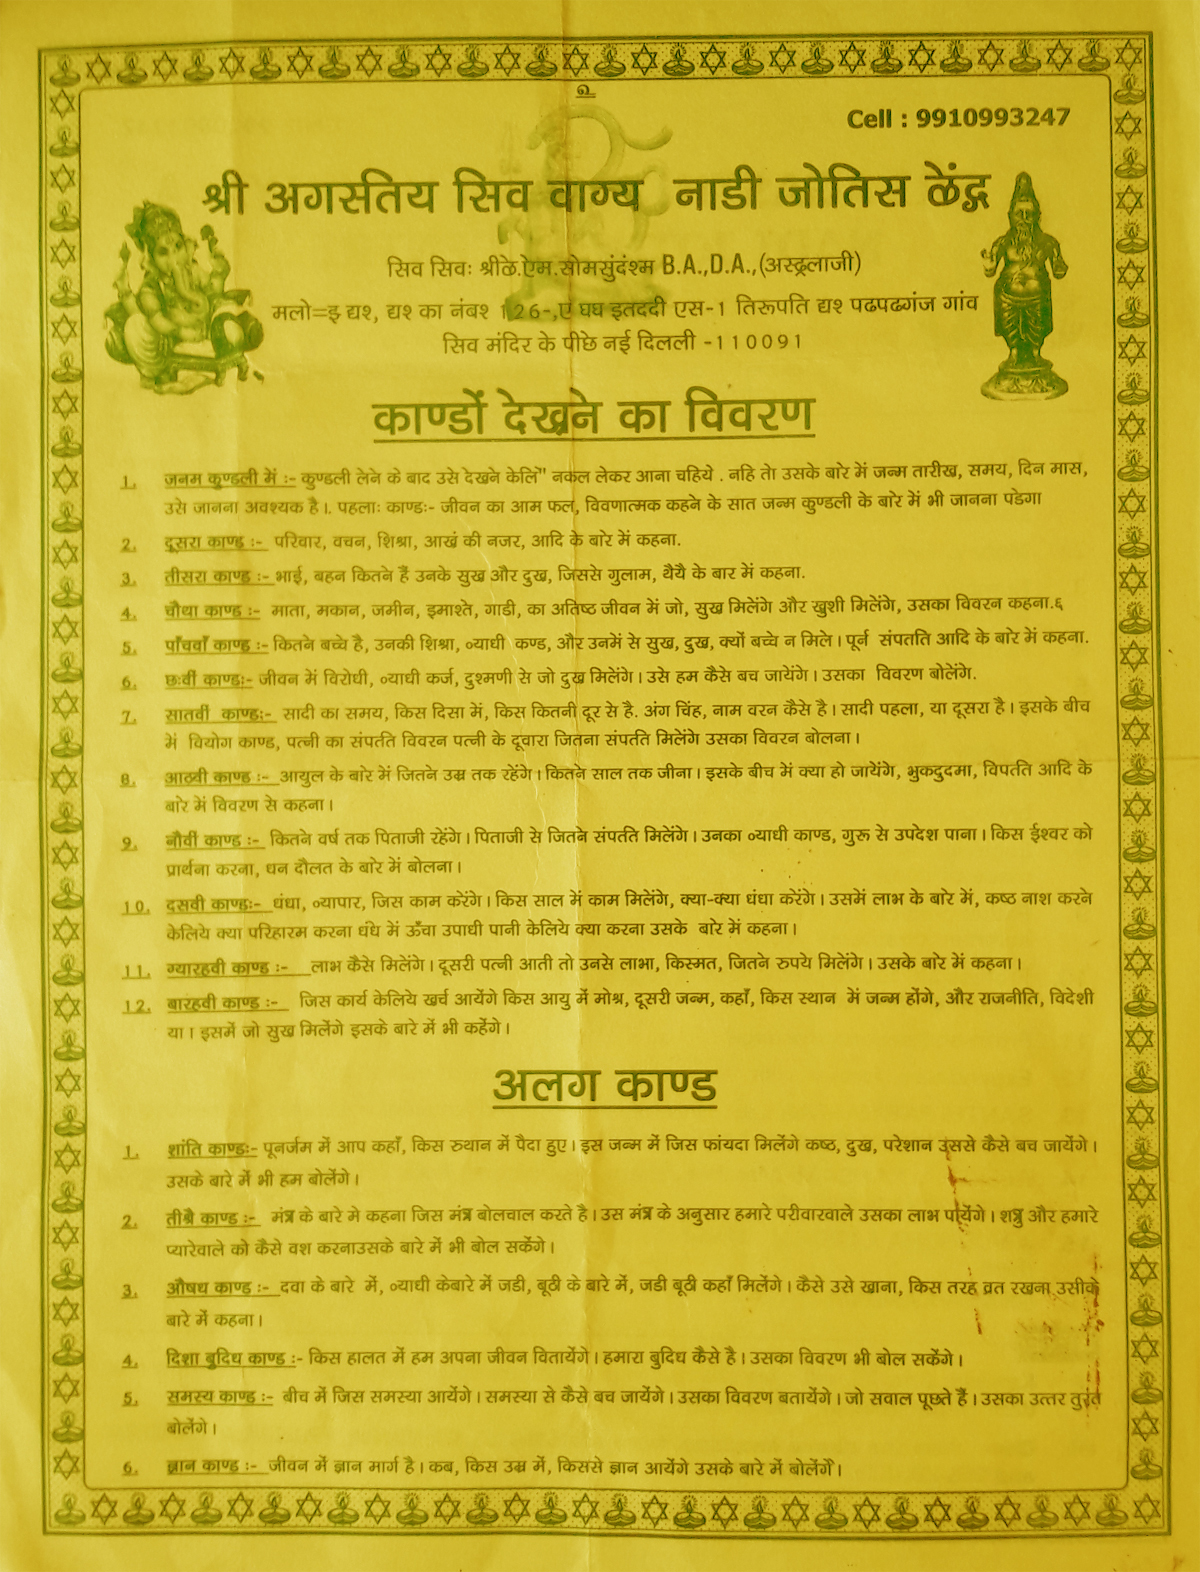 உ
Cell : 9910993247
श्री अगस्तिय सिव वाग्य नाडी जोतिस ळेंद्र
सिव सिवः श्रीळे.ऐम.सोमसुंदंश्म B.A.,D.A.,(अस्द्रलाजी)
मलो=इ द्यश, द्यश का नंबश 126-,ए घघ इतददी एस-1 तिरूपति द्यश पढपढगंज गांव
सिव मंदिर के पीछे नई दिलली -110091
काण्डों देखने का विवरण
1. जनम कुण्डली में :- कुण्डली लेने के बाद उसे देखने केलिं" नकल लेकर आना चहिये . नहि तेा उसके बारे में जन्म तारीख, समय, दिन मास,
उसे जानना अवश्यक है।. पहलाः काण्डः- जीवन का आम फल, विवणात्मक कहने के सात जन्म कुण्डली के बारे में भी जानना पडेगा
2. दूसरा काण्ड :- परिवार, वचन, शिश्रा, आखं की नजर, आदि के बारे में कहना.
3. तीसरा काण्ड :- भाई, बहन कितने हैं उनके सुख और दुख, जिससे गुलाम, थैयै के बार में कहना.
4. चौथा काण्ड :- माता, मकान, जमीन, इमाश्ते, गाडी, का अतिष्ठ जीवन में जो, सुख मिलेंगे और खुशी मिलेंगे, उसका विवरन कहना.६
5. पाँचवाँ काण्ड :- कितने बच्चे है, उनकी शिश्रा, व्याधी कण्ड, और उनमें से सुख, दुख, क्यों बच्चे न मिले। पूर्न संपतति आदि के बारे में कहना.
6. छःवीं काण्डः- जीवन में विरोधी, व्याधी कर्ज, दुश्मणी से जो दुख मिलेंगे। उसे हम कैसे बच जायेंगे। उसका विवरण बोलेंगे.
7. सातवीं काण्डः- सादी का समय, किस दिसा में, किस कितनी दूर से है. अंग चिंह, नाम वरन कैसे है। सादी पहला, या दूसरा है। इसके बीच
में वियोग काण्ड, पत्नी का संपर्तति विवरन पत्नी के दूवारा जितना संपर्तति मिलेंगे उसका विवरन बोलना।
8. आठवी काण्ड :- आयुल के बारे में जितने उम्र तक रहेंगे। कितने साल तक जीना। इसके बीच में क्या हो जायेंगे, भुकदुदमा, विपतति आदि के
बारे में विवरण से कहना।
9. नौवीं काण्ड :- कितने वर्ष तक पिताजी रहेंगे। पिताजी से जितने संपर्तति मिलेंगे। उनका व्याधी काण्ड, गुरू से उपदेश पाना। किस ईश्वर को
प्रार्थना करना, धन दौलत के बारे में बोलना।
10. दसवी काण्डः- धंधा, व्यापार, जिस काम करेंगे। किस साल में काम मिलेंगे, क्या-क्या धंधा करेंगे। उसमें लाभ के बारे में, कष्ठ नाश करने
केलिये क्या परिहारम करना धंधे में ऊँचा उपाधी पानी केलिये क्या करना उसके बारे में कहना।
11. ग्यारहवी काण्ड :- लाभ कैसे मिलेंगे। दूसरी पत्नी आती तो उनसे लाभा, किस्मत, जितने रुपये मिलेंगे। उसके बारे में कहना।
12. बारहवी काण्ड :- जिस कार्य केलिये खर्च आयेंगे किस आयु में मोश्र, दूसरी जन्म, कहाँ, किस स्थान में जन्म होंगे, और राजनीति, विदेशी
या। इसमें जो सुख मिलेंगे इसके बारे में भी कहेंगे।
अलग काण्ड
1. शांति काण्डः- पूनर्जम में आप कहाँ, किस रुथान में पैदा हुए। इस जन्म में जिस फांयदा मिलेंगे कष्ठ, दुख, परेशान उससे कैसे बच जायेंगे।
उसके बारे में भी हम बोलेंगे।
2. तीश्रै काण्ड :- मंत्र के बारे मे कहना जिस मंत्र बोलचाल करते है। उस मंत्र के अनुसार हमारे परीवारवाले उसका लाभ पायेंगे। शत्रु और हमारे
प्यारेवाले को कैसे वश करनाउसके बारे में भी बोल सकेंगे।
3. औषध काण्ड :- दवा के बारे में, व्याधी केबारे में जडी, बूठी के बारे में, जडी बूठी कहाँ मिलेंगे। कैसे उसे खाना, किस तरह व्रत रखना उसीके
बारे में कहना।
4. दिशा बुदिध काण्ड :- किस हालत में हम अपना जीवन वितायेंगे। हमारा बुदिध कैसे है। उसका विवरण भी बोल सकेंगे।
5. समस्य काण्ड :- बीच में जिस समस्या आयेंगे। समस्या से कैसे बच जायेंगे। उसका विवरण बतायेंगे। जो सवाल पूछते हैं। उसका उत्तर तुरंत
बोलेंगे।
6. ज्ञान काण्ड :- जीवन में ज्ञान मार्ग है। कब, किस उम्र में, किससे ज्ञान आयेंगे उसके बारे में बोलेंगें।